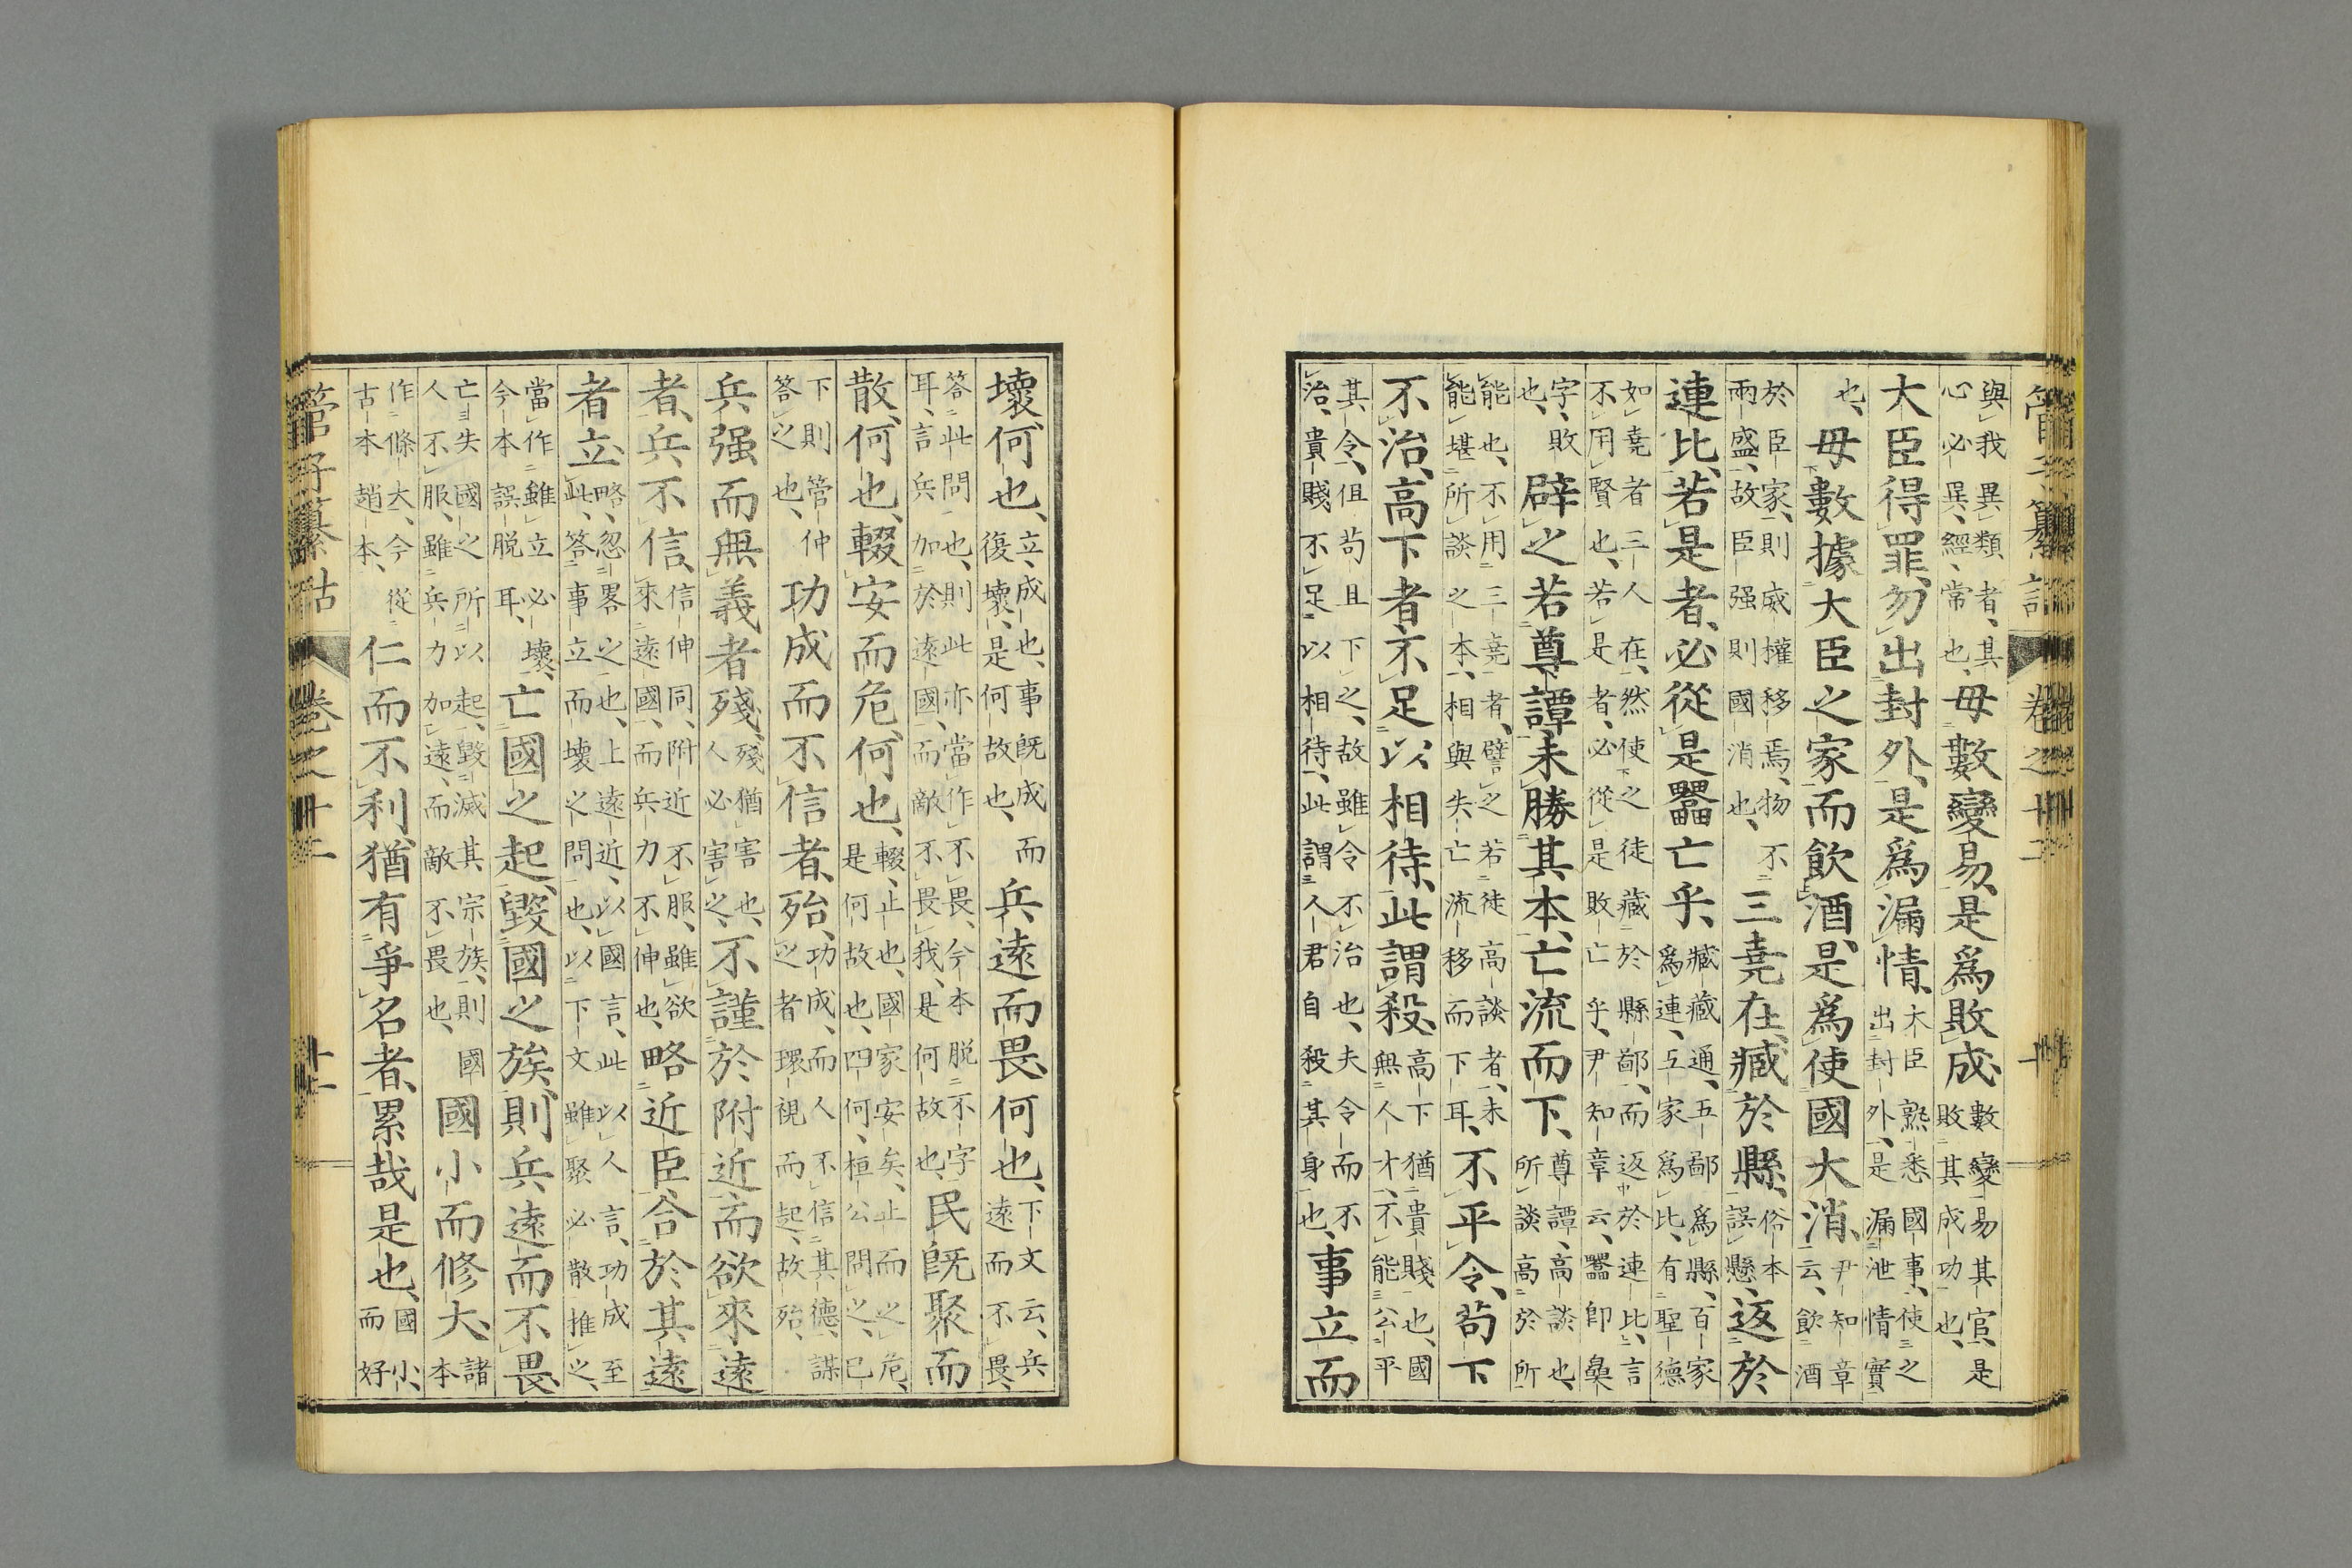 管子纂詁 卷之十二 十
與我異類者、其
心必異、經、常也、
毋數變易、是爲敗成、
數變易其官、是
敗其成功也、
大臣得罪、勿出封外、是爲漏情、
大臣熟悉國事、使之
出封外、是漏泄情實
也、
毋數據大臣之家而飮酒、是爲使國大消、
尹知章
云、飮酒
於臣家、則威權移焉、物不
兩盛、故臣强則國消也、
三堯在、臧於縣、
俗本
誤懸、
返於
連比、若是者、必從是亡乎、
臧藏通、五鄙爲縣、百家
爲連、五家爲比、有聖德
如堯者三人在、然使之徒藏於縣鄙、而返於連比、言
不用賢也、若是者、必從是敗亡乎、尹知章云、卽
字、敗
也、
辟之若尊譚未勝其本、亡流而下、
尊譚、高談也、
所談高於所
能也、不用三堯者、譬之若徒高談者、未
能堪所談之本、相與失亡流移而下耳、
不平令、苟下
不治、高下者、不足以相待、此謂殺、
高下猶貴賤也、國
無人才、不能公平
其令、但苟且下之、故雖令不治也、夫令而不
治、貴賤不足以相待、此謂人君自殺其身也、
事立而
壞、何也、
立、成也、事旣成而
復壞、是何故也、
兵遠而畏、何也、
下文云、兵
遠而不畏、
答此問也、則此亦當作不畏、今本脫不字、
耳、言兵加於遠國、而敵不畏我、是何故也、
民旣聚而
散、何也、輟安而危、何也、
輟、止也、國家安矣、止而之危、
是何故也、四何、桓公問之、已
下則管仲
答之也、
功成而不信者、殆、
功成、而人不信其德、謀
之者環視而起、故殆、
兵强而無義者殘、
殘猶害也、
人必害之、
不謹於附近、而欲來遠
者、兵不信、
信伸同、附近不服、雖欲
來遠國、而兵力不伸也、
略近臣、合於其遠
者立、
略、忽畧之也、上遠近、以國言、此以人言、功成至
此、答事立而壞之問也、以下文雖聚必散推之、
當作雖立必壞、
今本誤脫耳、
亡國之起、毀國之族、則兵遠而不畏、
亡失國之所以起、毀滅其宗族、則國
人不服、雖兵力加遠、而敵不畏也、
國小而修大、
諸
本
作條大、今從
古本趙本、
仁而不利、猶有爭名者、累哉是也、
國小、
而好
管子纂詁 卷之十二 十一